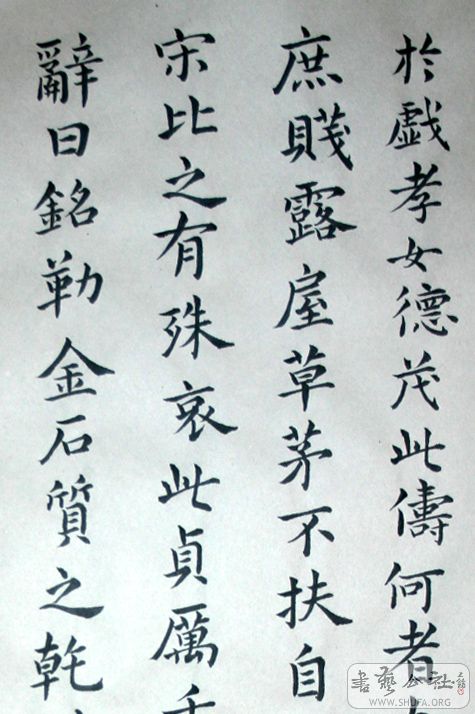 於戯孝女德茂此儔何者
庶賎露屋草茅不扶自
宋比之有殊哀此貞厲
辭曰銘勒金石質之乾
書藝公社
WWW.SHUFA.ORG